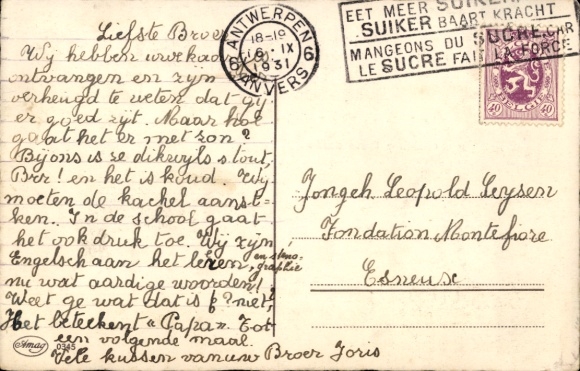 Liefste Broer
Wij hebben uwe kaart
ontvangen en zijn
verheugd te weten dat gij
er goed zijt. Maar hoe
gaat het er met zon?
Bij ons is ze dikwijls stout,
Brr! en het is koud. Wij
moeten de kachel aanst=
ken. In de school gaat
het ook druk toe. Wij zijn
Engelsch aan het leeren, en steno-
graphie
nu wat aardige woorden!
Weet ge wat dat is f? niet?
Het beteekent «Papa». Tot
een volgende maal.
Vele kussen van uw Broer Joris
Amag
0345
ANTWERPEN
18-19
6 IX
1931
6 6
ANVERS
EET MEER SUIKER
SUIKER BAART KRACHT
MANGEONS DU SUCRE, CAR
LE SUCRE FAIT LA FORCE
BELGIE
40 40
Jongeh Leopold Leysen
Fondation Montefiore
Esneux